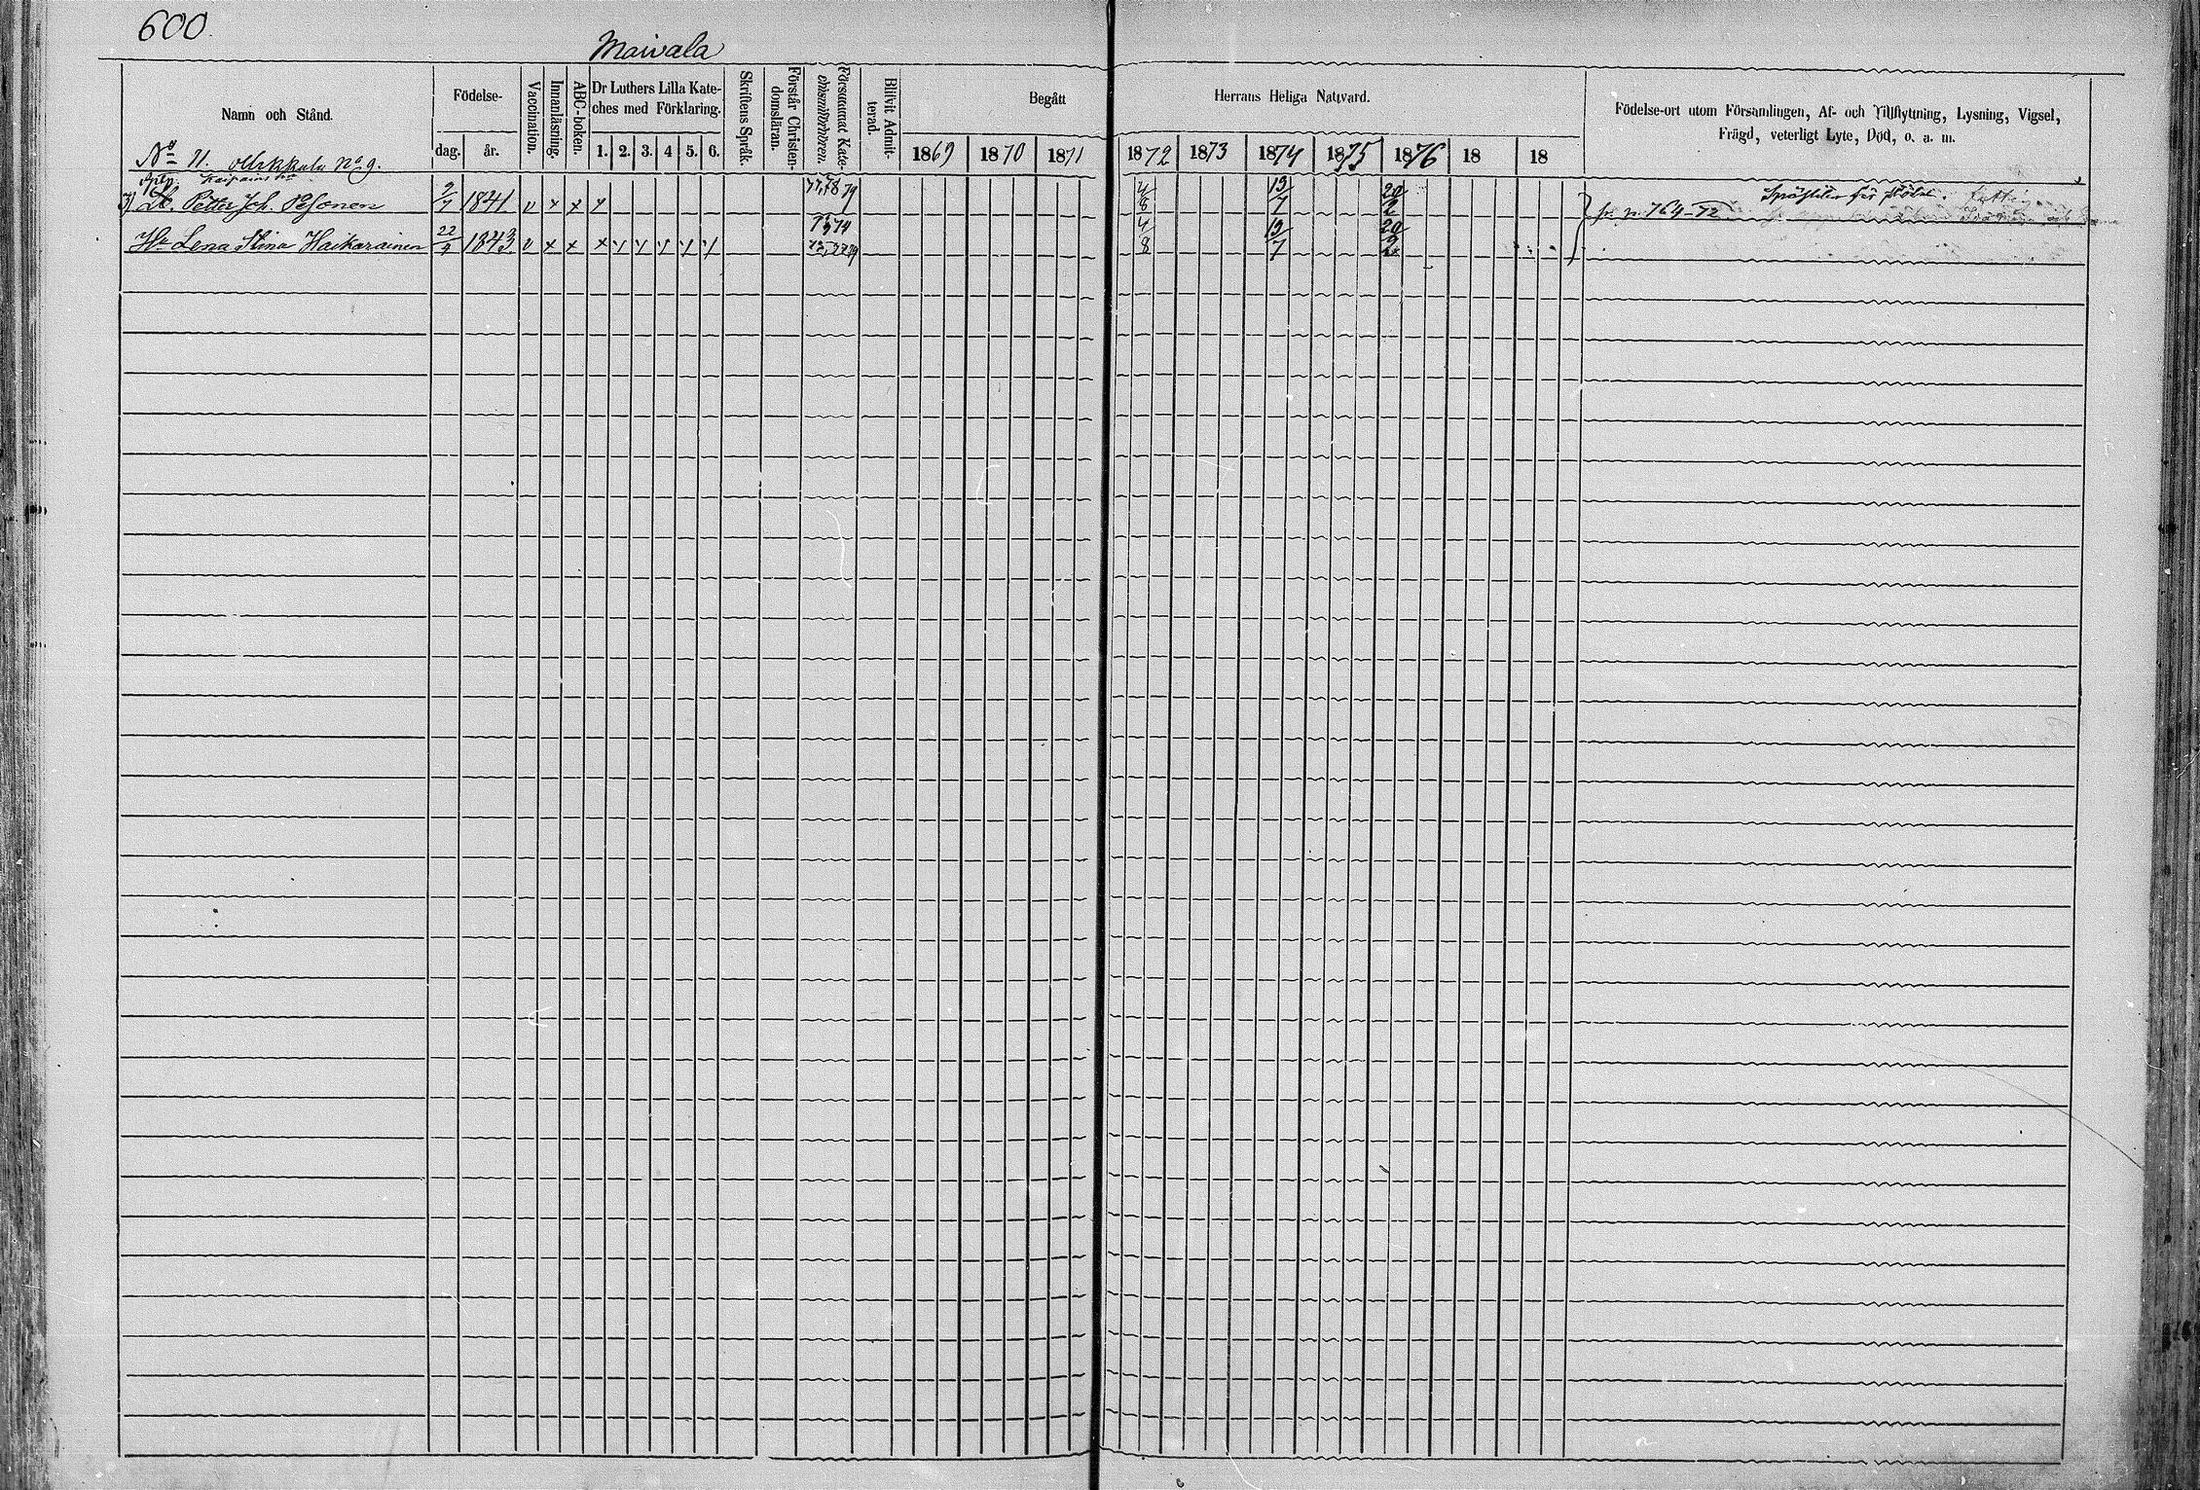 600.
Maivala
Namn och Stånd.
Födelse-
dag.
år.
Vaccination.
Innanläsning.
ABC-boken.
Dr Luthers Lilla Kate-
ches med Förklaring.
1. 2. 3. 4 5. 6.
Skriftens Språk.
Förstår Christen-
domsläran.
Försummat Kate-
chismiförhören.
Blifvit Admit-
terad.
Begått
Herrans Heliga Nattvard.
1869 1870 1871 1872 1873 1874 1875 1876 18 18
Födelse-ort utom Församlingen, Af- och Tillflyttning, Lysning, Vigsel,
Frägd, veterligt Lyte, Död, o. a. m.
No 71. No 9.
Petter Joh. Pesonen 2/7 1841 v x x x 4/8 19/7 20/2
fr. p. 764-72
Hu Lena Stina Haikarainen 22/9 1843 v x x x 4/8 19/7 20/2